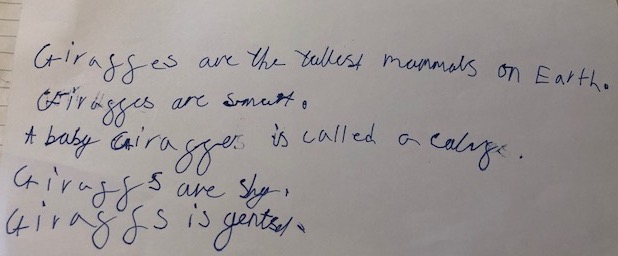 Giraffes are the tallest mammals on Earth.
Giraffes are smart.
A baby Giraffes is called a calf.
Giraffs are shy.
Giraffs is gentel.